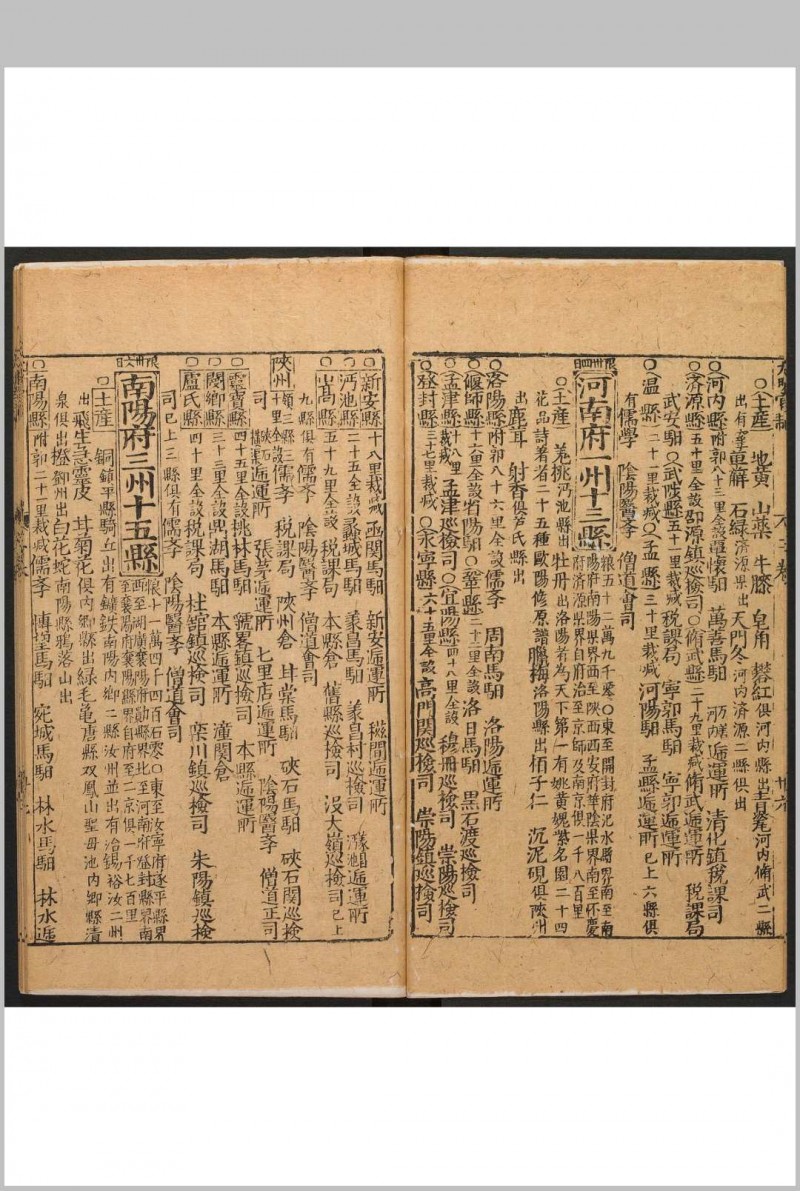 ○土産 地黄 山藥 牛膝 皂角 礬紅俱河内縣出 青
出有 石緑済源県出 天門冬河内済源二縣俱出
○河内縣附郭八十三里全設覃懷馹 萬善馬馹 逓運所 清化鎮税課司
○済源縣五十里全設邵源鎮巡檢司○脩武縣二十九里裁減脩武逓運所 税課局
武安馹○武陟縣五十一里裁減税課局 寧郭馬馹 寧郭逓運所
○温縣二十一里裁減○孟縣三十里裁減河陽馹 孟縣逓運所已上六縣俱
有儒學 陰陽醫斈 僧道會司
限卅四日
河南府一州十三縣
粮五十二萬九千零○東至開封府汜水縣界南至南
陽府南陽県界西至陜西西安府華陰県界南至怀慶
府済源県界自府治至京師及南京俱一千八百里
○土産 羗桃沔池縣出 牡丹出洛陽者為天下第一有姚黄魏紫名園二十四
花品詩著者二十五種歐陽修原譜 臘梅洛陽縣出 栢子仁 沉泥硯俱陜州
出 鹿茸 射香俱芦氏縣出
○洛陽縣附郭八十六里全設儒斈 周南馬馹 洛陽逓運所
○偃師縣十六里全設首陽馹○鞏縣二十二里全設洛日馬馹 黒石渡巡檢司
○孟津縣十八里裁減孟津巡檢司○宜陽縣四十八里全設穆冊巡檢司 崇陽巡檢司
○登封縣三十七里裁減○永寧縣六十五里全設高門関巡檢司 崇陽鎮巡檢司
○新安縣十八里裁減函関馬馹 新安逓運所 磁澗逓運所
○沔池縣二十五全設蠡城馬馹 義昌馬馹 義昌村巡檢司 逓運所
○嵩縣五十九里全設 税課局 本縣倉 舊縣巡檢司 没大嶺巡檢司已上
九縣俱有儒斈 陰陽醫斈 僧道會司
陜州領三縣三十里全設儒斈 税課局 陜州倉 甘棠馬馹 硤石馬馹 硤石関巡檢
司 逓運所 張茅逓運所 七里店逓運所 陰陽醫斈 僧道正司
○靈寶縣四十五里全設桃林馬馹 虢畧鎮巡檢司 本縣逓運所
○閿鄉縣三十三里全設鼎湖馬馹 本縣逓運所 潼関倉
○盧氏縣四十里全設税課局 社舘鎮巡檢司 栾川鎮巡檢司 朱陽鎮巡檢
司已上三縣俱有儒斈 陰陽醫斈 僧道會司
限卅六日
南陽府三州十五縣
粮十一萬四千四百石零○東至汝寧府遂平縣界
西至湖廣襄陽府鄖縣界北至河南府登封縣界南
至襄陽府襄陽縣界自府至二京俱一千七百里
○土産 銅鎮平縣騎立山出有鐵鉄南陽内鄉二縣汝州並出有冶錫裕汝二州
出 飛生急靈皮 甘菊花俱内鄉縣出 緑毛亀唐縣双鳳山聖母池内鄉縣清
泉俱出 橙鄧州出 白花蛇南陽縣鴉落山出
○南陽縣附郭二十里裁減儒斈 博望馬馹 宛城馬馹 林水馬馹 林水逓